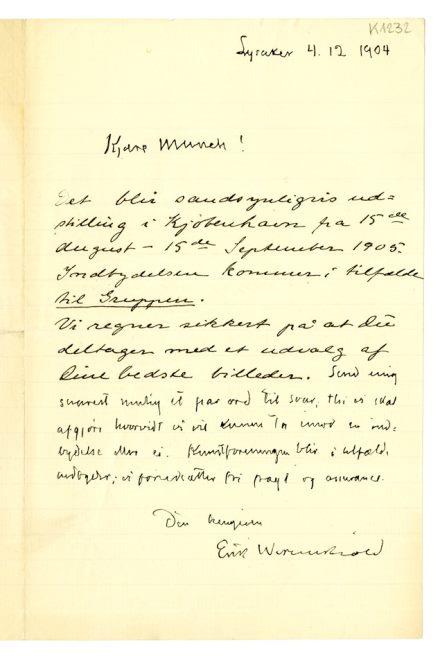 K1232
Lysaker 4. 12 1904
Kjære Munch!
Det blir sandsynligvis ud=
stilling i Kjøbenhavn fra 15de
August – 15de September 1905.
Indbydelsen kommer i tilfælde
til Gruppen.
Vi regner sikkert på at Du
deltager med et udvalg af
Dine bedste billeder. Send mig
snarest mulig et par ord til svar, thi vi skal
afgjøre hvorvidt vi vil kunne ta imod en ind=
bydelse eller ei. Kunstforeningen blir i tilfælde
indbyder; vi forudsætter fri fragt og assurance.
Din hengivne
Erik Werenskiold